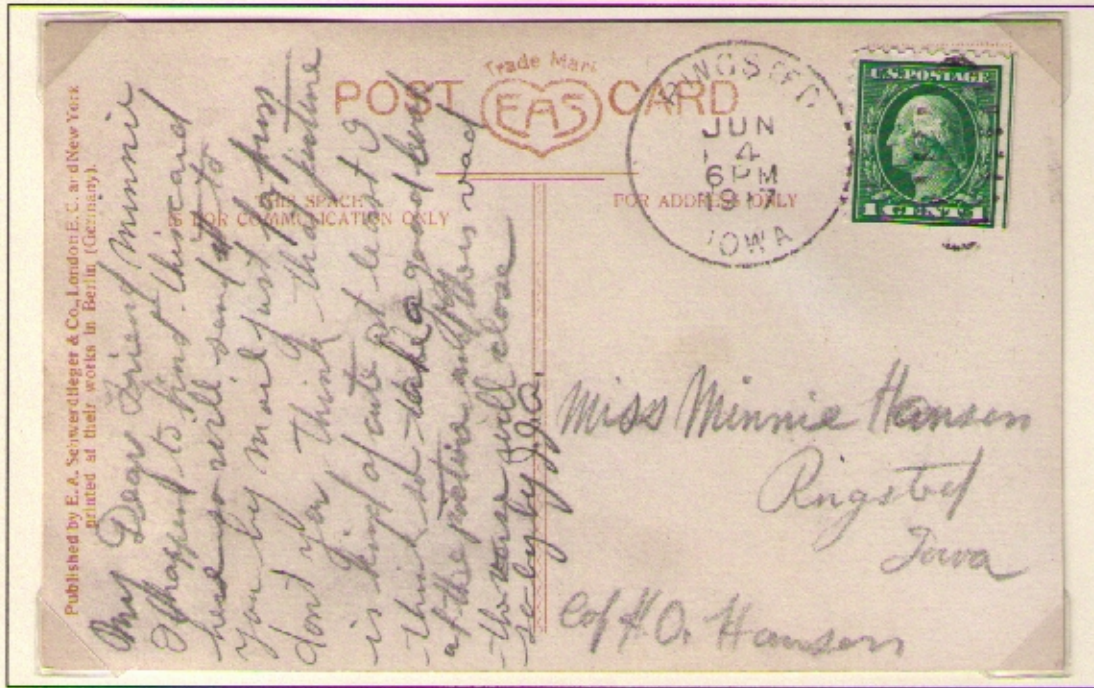 Published by E. A. Schwerdtfeger & Co., London E.C. and New York
printed at their works in Berlin (Germany).
Trade Mark
POST EAS CARD
THIS SPACE
IS FOR COMMUNICATION ONLY
FOR ADDRESS ONLY
RINGSTED
JUN
4
6PM
1917
IOWA
U.S. POSTAGE
1 CENT 1
My Dear Friend Minnie
I happened to find this card
here so will send it to
you by mail just for fun
dont you think that picture
is kind of cute at least I
think so take a good look
at the picture and
the verse will close
J.J.A.
Miss Minnie Hansen
Ringsted
Iowa
C/o H.O. Hansen